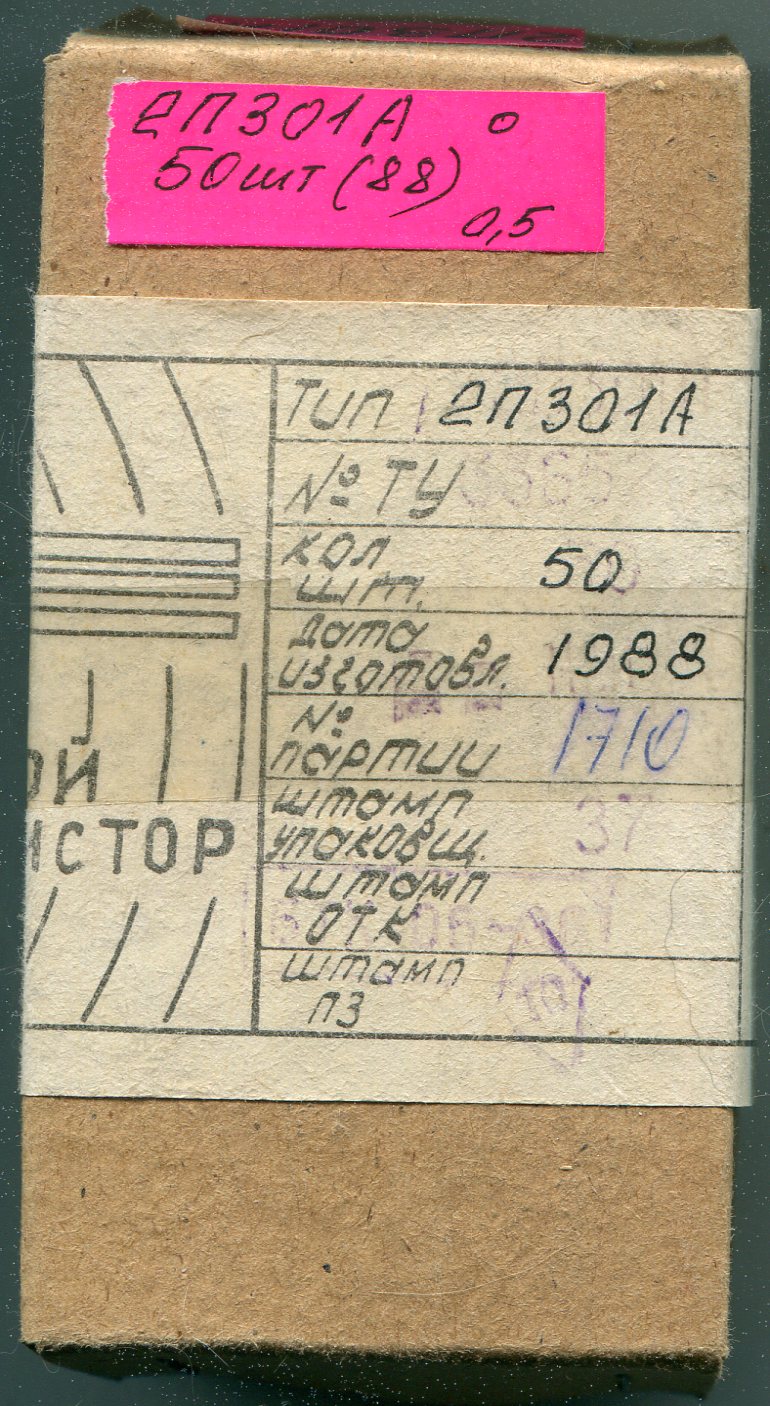 2П301А о
50шт (88)
0,5
Тип 2П301А
№ ТУ
кол
шт. 50
дата
изготовл. 1988
№
партии 1710
штамп
упаковщ. 37
штамп
ОТК
штамп
ПЗ